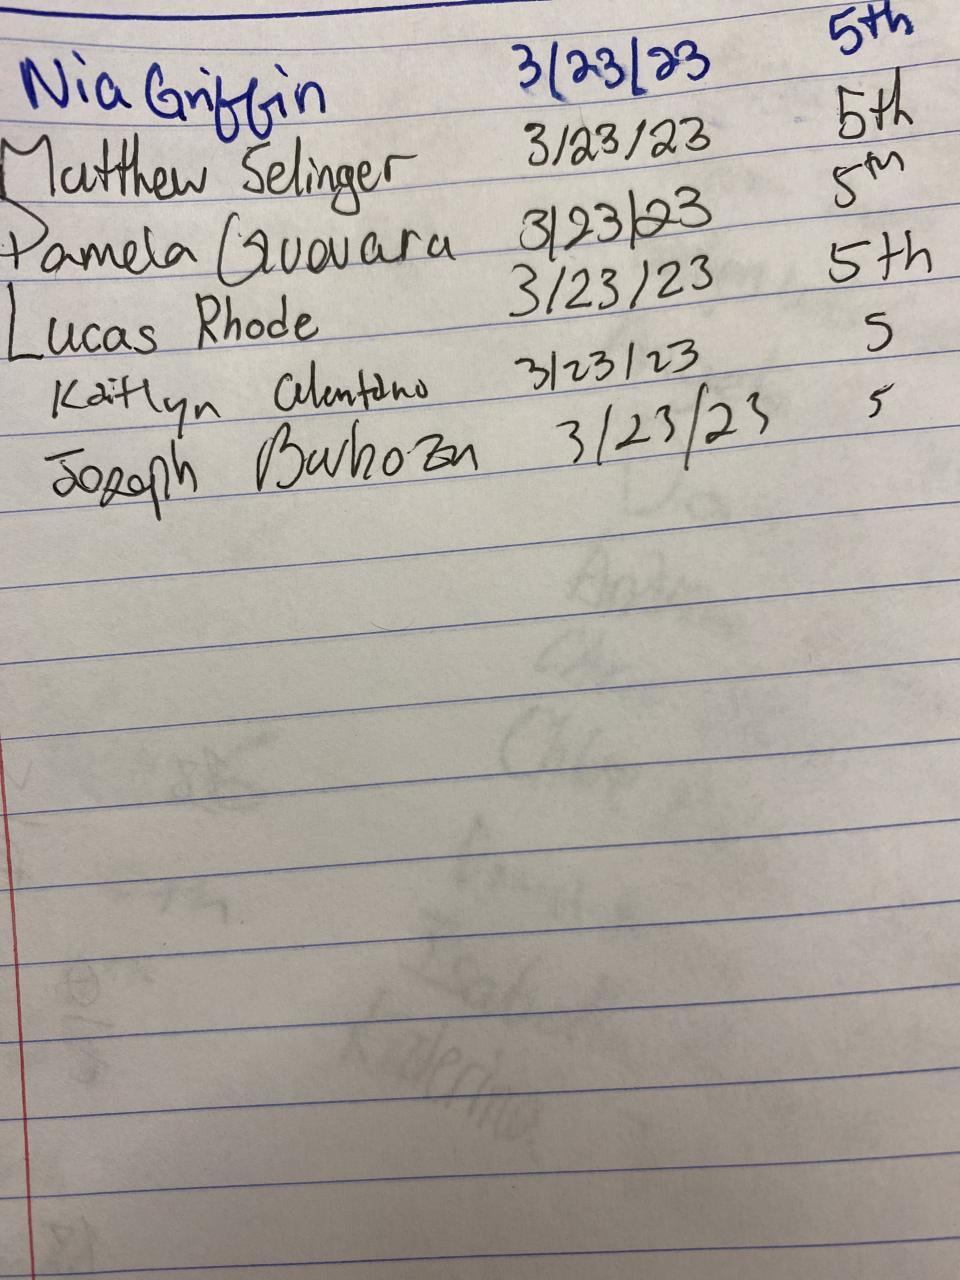 Nia Griffin 3/23/23 5th
Matthew Selinger 3/23/23 5th
Pamela Guovara 3/23/23 5th
Lucas Rhode 3/23/23 5th
Kaitlyn 3/23/23 5
Joseph 3/23/23 5